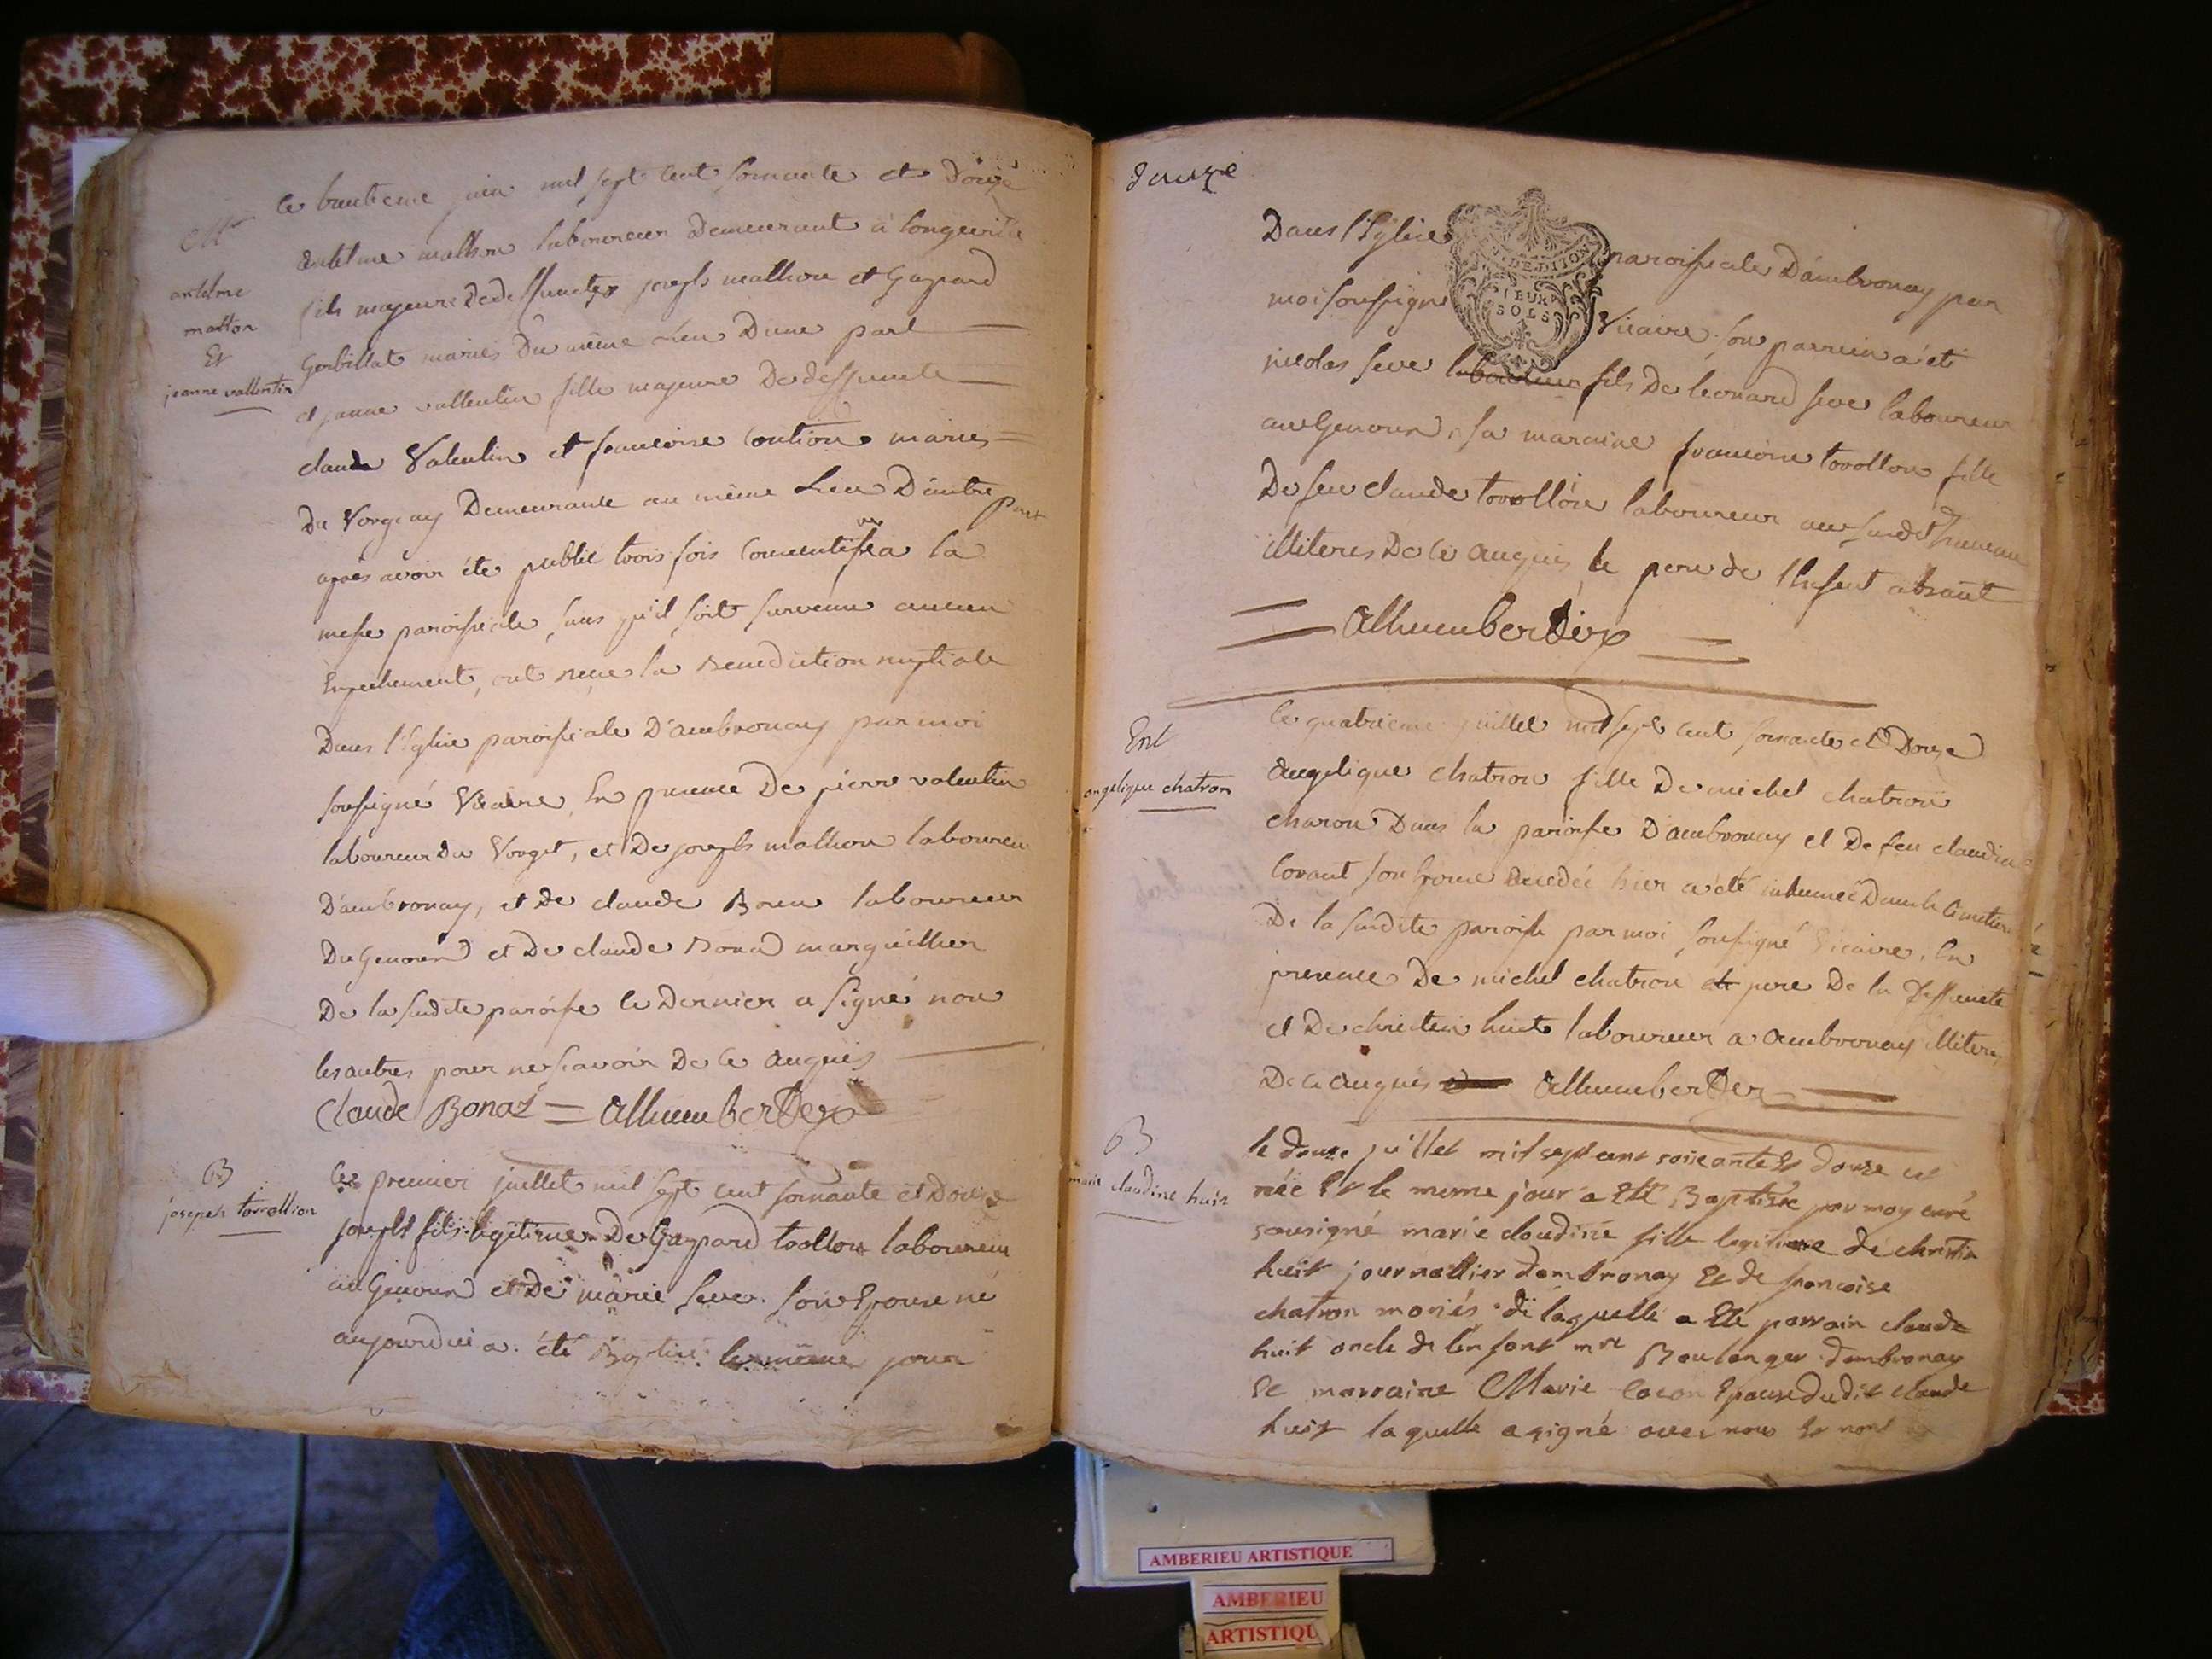 le trentieme juin mil sept cent soixante et douze
Mar
antelme
matton
Et
jeanne vallentin
antelme mathon laboureur Demeurant à longeville
fils majeure De deffuncts joseph mathon et Gaspard
Gorbillat mariés Du même Lieu D'une part
et janne vallentin fille majeure De deffuncte
claude Valentin et francoise mariés
Du Vorgeay Demeurante au même Lieu D'autre part
après avoir été publié trois fois consecutisve a la
messe paroissiale, sans qu'il soit survenu aucun
Enpechement, ont reçu la Benediction nuptiale
Dans l'Eglise paroissiale D'ambronay par moi
soussigné Vicaire, En presence De pierre valentin
laboureur Du Vorget, et De joseph mathon laboureur
D'ambronay, et De claude laboureur
Du Genoux et De claude Bonaz marguillier
De la susdite paroisse le Dernier a signé non
les autres pour ne scavoir De ce Enquis
Claude Bonaz = Alhumbert Vic
B
joseph torrollion
Le premier juillet mil sept cent soixante et Douze
joseph fils legitime De Gaspard torollon laboureur
au Genoux et De marie seve son Epouse né
aujourdui a été Baptisé le même jour
douze
Dans l'Eglise paroissiale D'ambronay par
G. DE DIJON
DEUX
SOLS
moi soussigné Vicaire son parrein a été
nicolas seve laboureur fils De leonard seve laboureur
au Genoux, sa maraine francoise torollon fille
De feu claude torollon laboureur au susdit hameau
illiteres De ce enquis le pere de l'Enfant absant
= Alhumbert Vic
Ent
angelique chatron
Le quatrieme juillet mil sept cent soixante et Douze
Angelique chatron fille De michel chatron
charon Dans la paroisse D'ambronay et De feu claudine
Corant son Epouse Decedée hier a été inhumée Dans le Cimetiere
De la susdite paroisse par moi soussigné Vicaire. En
presence De michel chatron pere De la Deffuncte
et De christin huit laboureur a Ambronay illiteres
De ce Enquis Alhumbert Vic
B
marie claudine huit
le douze juillet mil sept cent soixante Et douze est
née Et le meme jour a Eté Baptisée par moy curé
sousigné marie claudine fille legitime de christin
huit journallier dambronay Et de francoise
chatron mariés de laquelle a Eté parrain claude
huit oncle de l'enfant mre Boulanger dambronay
Et marraine Marie Cocon Epouse du dit claude
huit laquelle a signé avec nous Et non
AMBERIEU ARTISTIQUE
AMBERIEU
ARTISTIQU